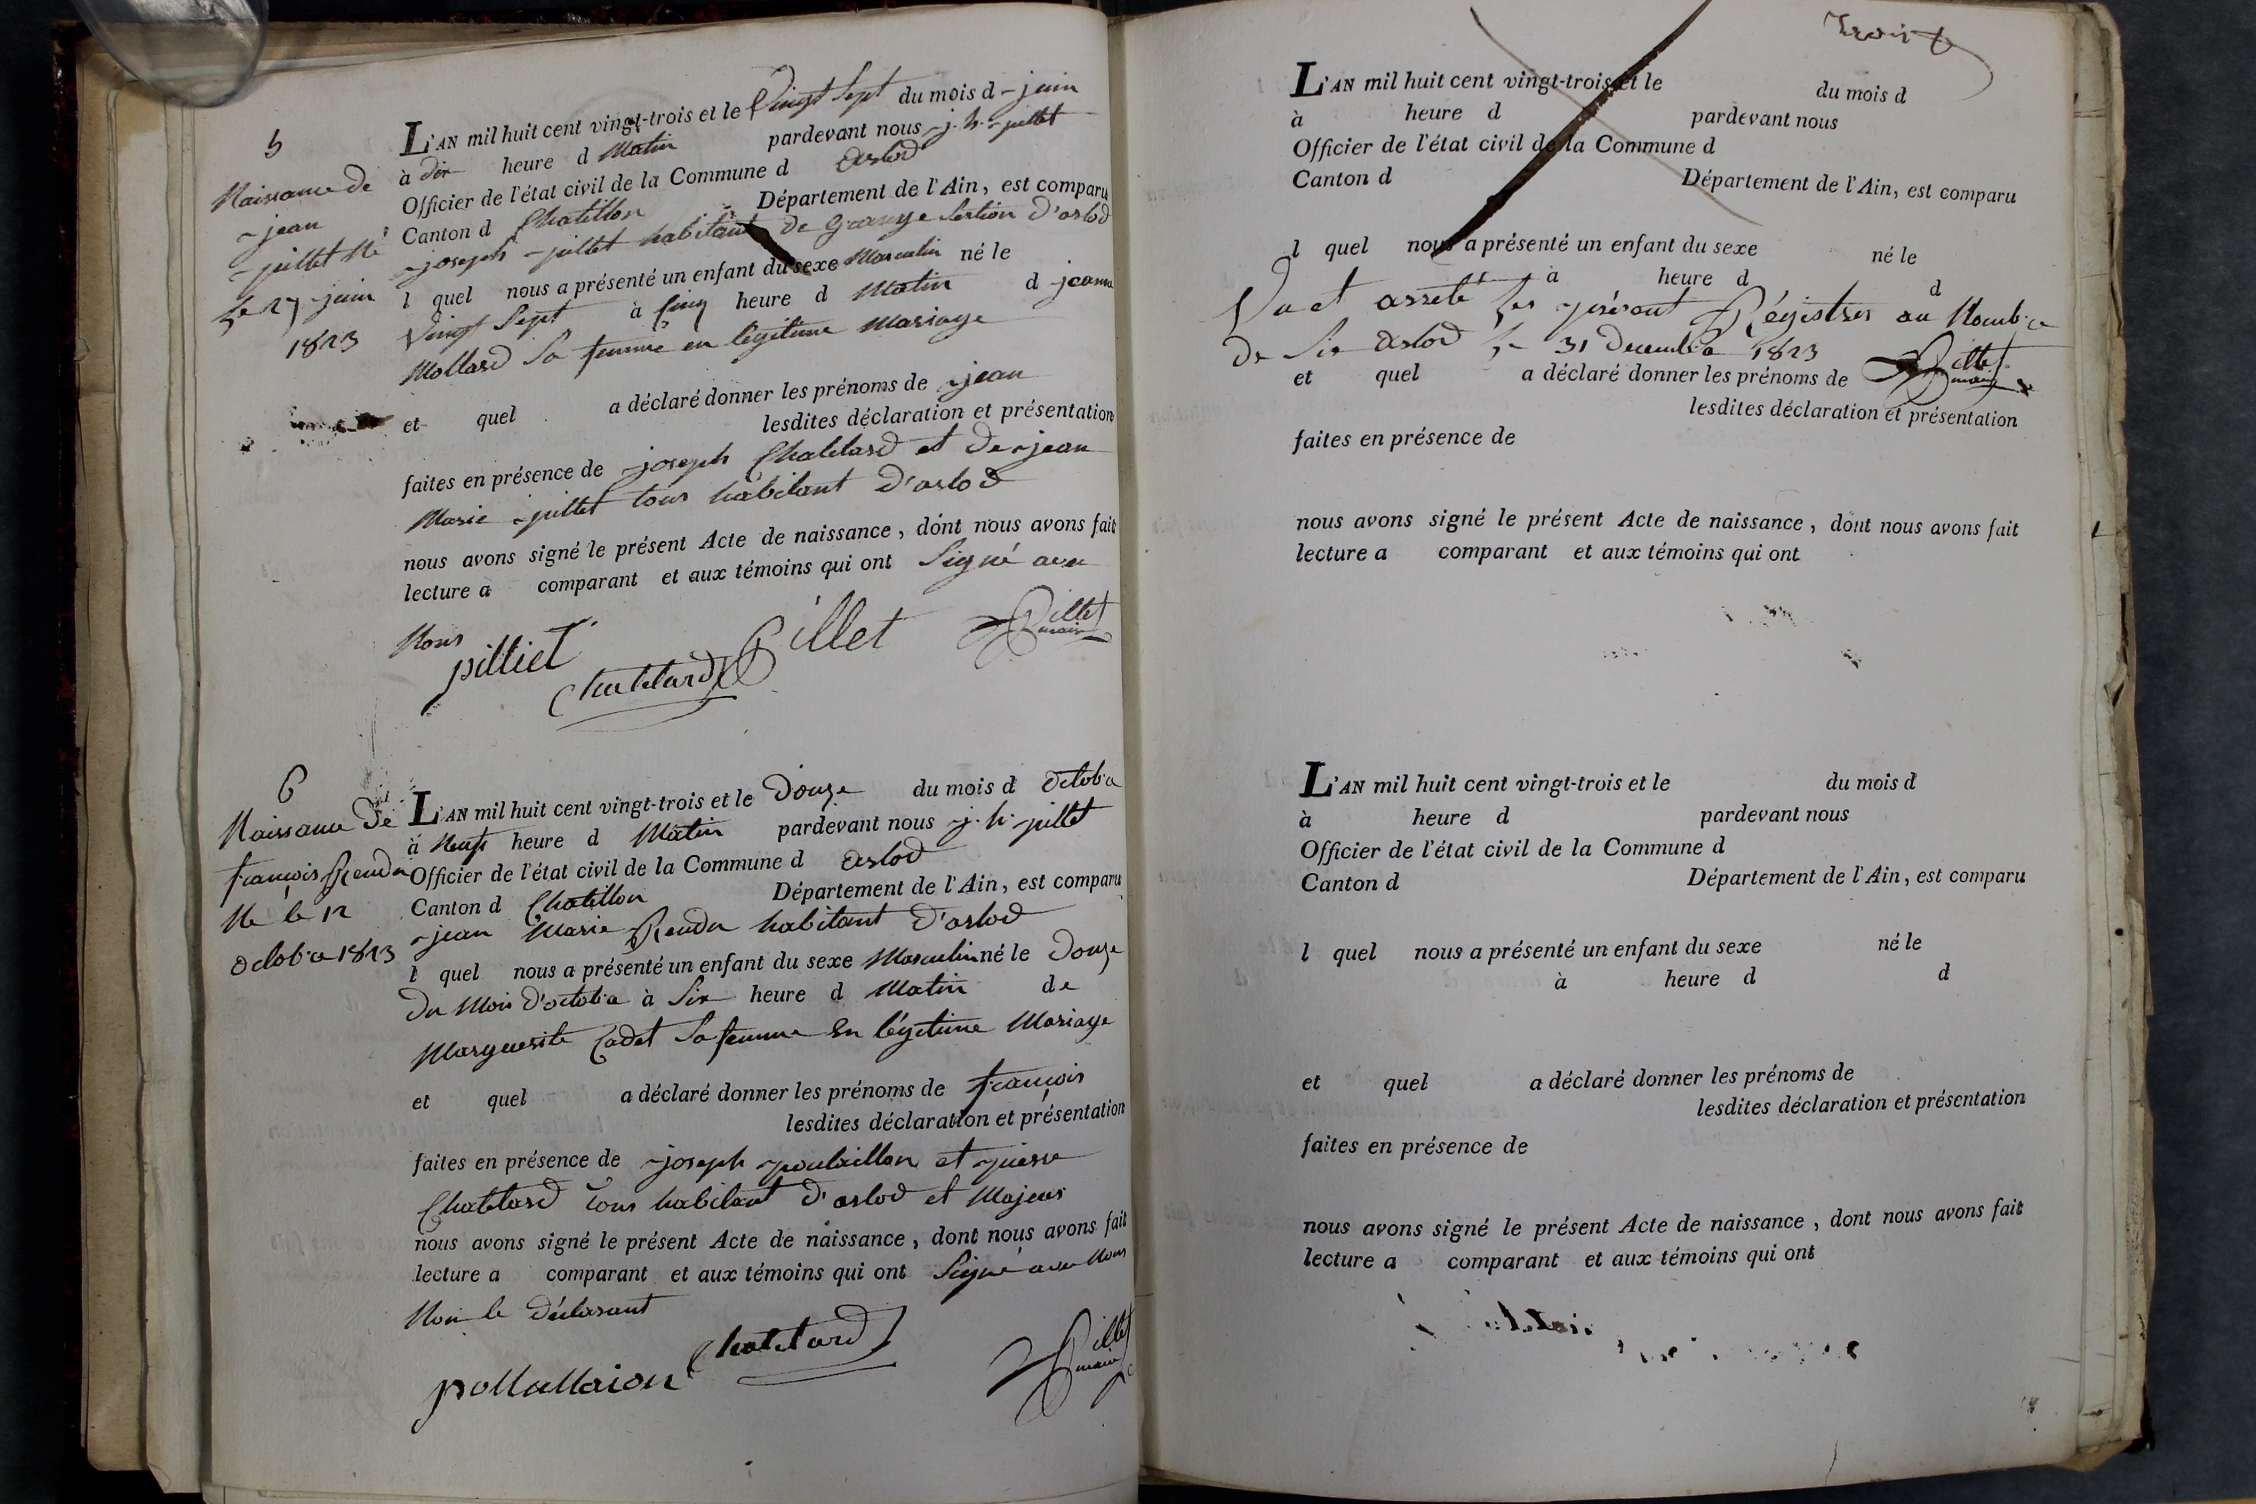 5
Naissance de
jean
pillet Né
le 27 juin
1823
L'AN mil huit cent vingt-trois et le Vingt Sept du mois d juin
à dix heure d Matin pardevant nous j. h. pillet
Officier de l'état civil de la Commune d arlod
Canton d Chatillon Département de l'Ain, est comparu
joseph pillet habitant de Grange Section d'arlod
l quel nous a présenté un enfant du sexe Masculin né le
Vingt Sept à Cinq heure d Matin d jeanne
Mollard Sa femme en légitime Mariage
et quel a déclaré donner les prénoms de jean
lesdites déclaration et présentation
faites en présence de joseph Chatelard et de jean
Marie pillet tous habitant d'arlod
nous avons signé le présent Acte de naissance, dont nous avons fait
lecture a comparant et aux témoins qui ont Signé avec
Nous
pilliet Chatelard Pillet Pillet maire
6
Naissance de
françois Rendu
Né le 12
octobre 1823
L'AN mil huit cent vingt-trois et le Douze du mois d octobre
à Neuf heure d Matin pardevant nous j. h. pillet
Officier de l'état civil de la Commune d arlod
Canton d Chatillon Département de l'Ain, est comparu
jean Marie Rendu habitant d'arlod
l quel nous a présenté un enfant du sexe Masculin né le Douze
Du Mois d'octobre à Six heure d Matin de
Marguerite Cadet Sa femme En légitime Mariage
et quel a déclaré donner les prénoms de françois
lesdites déclaration et présentation
faites en présence de joseph poulaillon et pierre
Chatelard tous habitant d'arlod et Majeurs
nous avons signé le présent Acte de naissance, dont nous avons fait
lecture a comparant et aux témoins qui ont Signé avec Nous
Non le Déclarant
pollallaion Chatelard Pillet maire
trois
L'AN mil huit cent vingt-trois et le du mois d
à heure d pardevant nous
Officier de l'état civil de la Commune d
Canton d Département de l'Ain, est comparu
l quel nous a présenté un enfant du sexe né le
à heure d d
Vu et arreté les présent Régistres au Nombre
de Six arlod le 31 Decembre 1823 Pillet maire
et quel a déclaré donner les prénoms de
lesdites déclaration et présentation
faites en présence de
nous avons signé le présent Acte de naissance, dont nous avons fait
lecture a comparant et aux témoins qui ont
L'AN mil huit cent vingt-trois et le du mois d
à heure d pardevant nous
Officier de l'état civil de la Commune d
Canton d Département de l'Ain, est comparu
l quel nous a présenté un enfant du sexe né le
à heure d d
et quel a déclaré donner les prénoms de
lesdites déclaration et présentation
faites en présence de
nous avons signé le présent Acte de naissance, dont nous avons fait
lecture a comparant et aux témoins qui ont